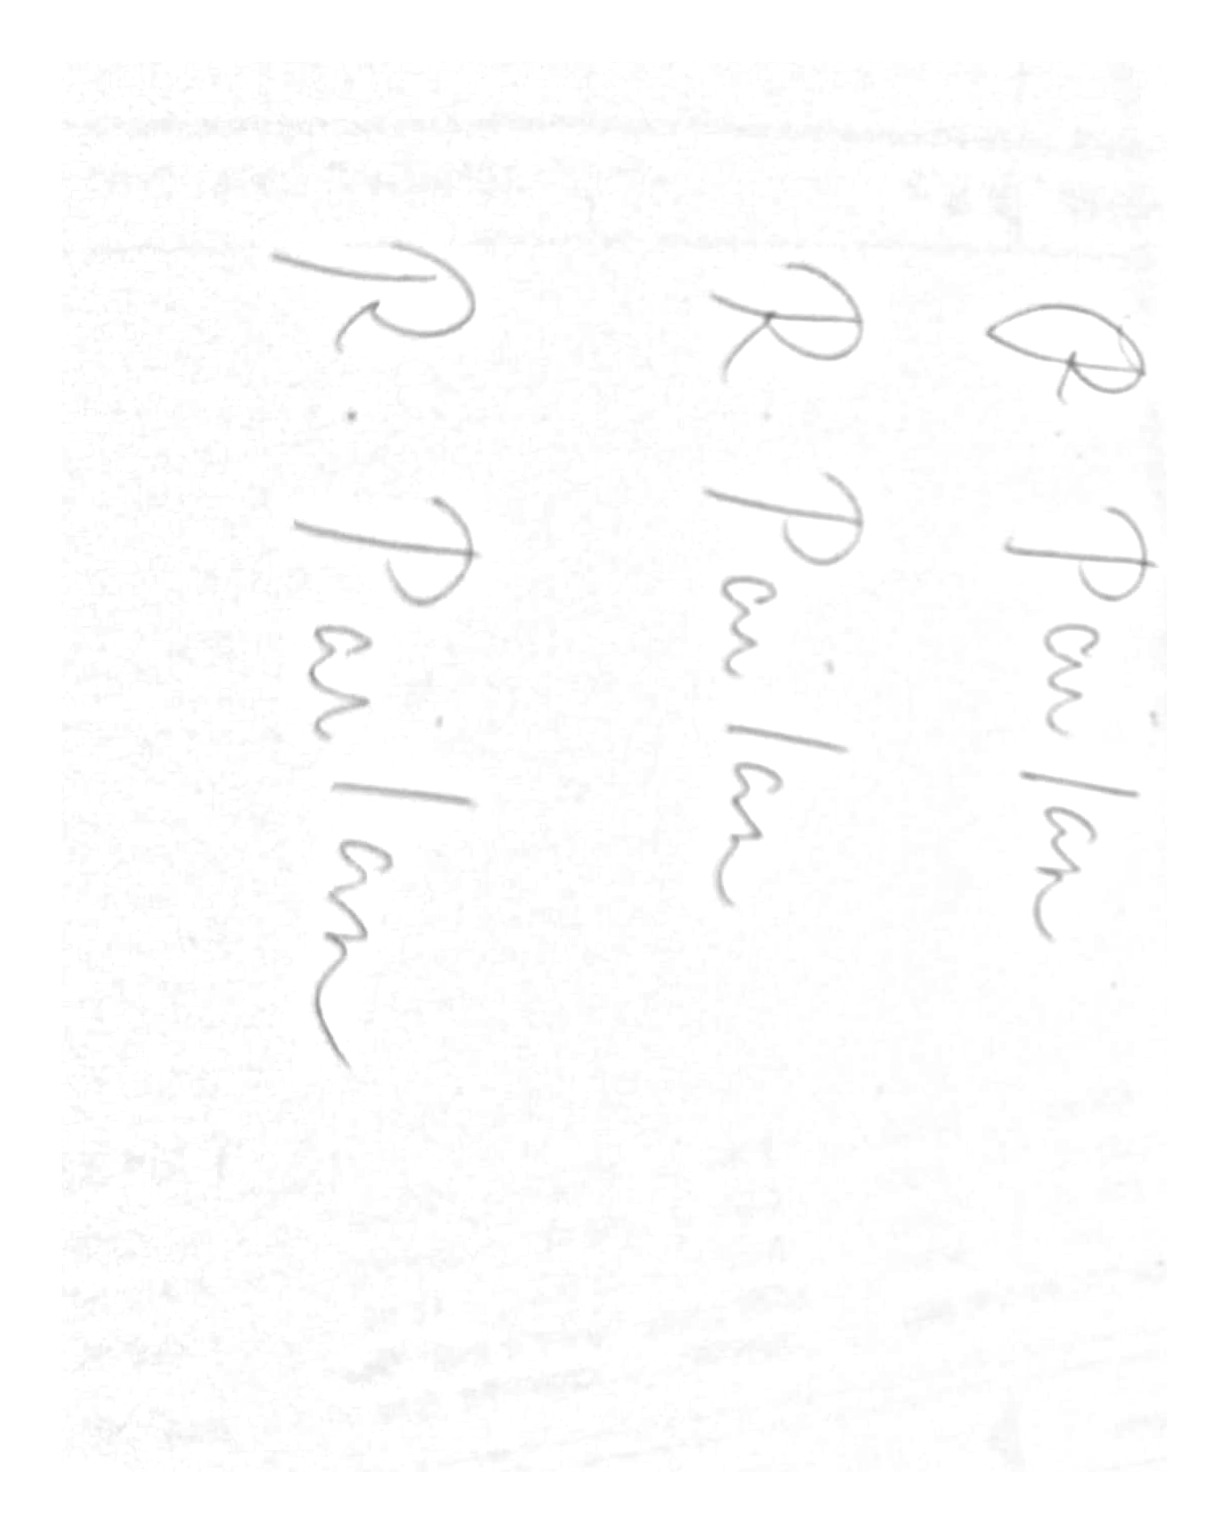 R. Pailan
R. Pailan
R. Pailan